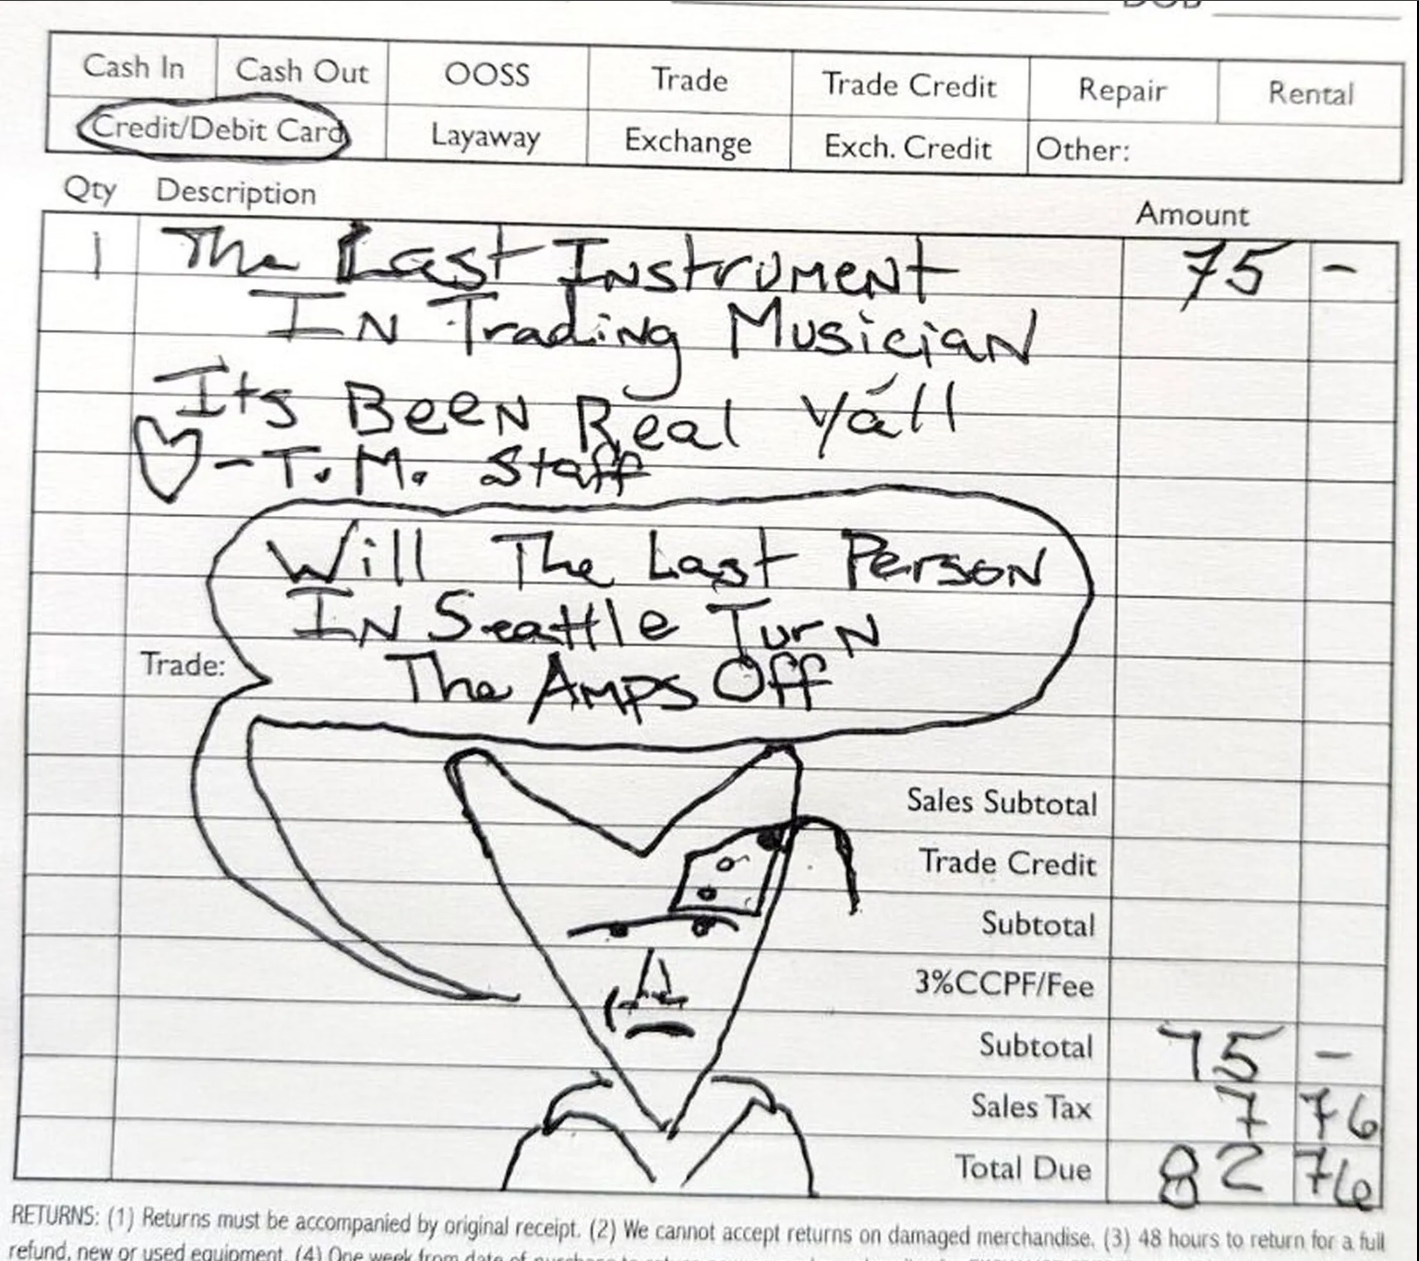 DOB
Cash In Cash Out OOSS Trade Trade Credit Repair Rental
Credit/Debit Card Layaway Exchange Exch. Credit Other:
Qty Description Amount
1 The Last Instrument 75 -
In Trading Musician
Its Been Real Yá'll
- T. M. Staff
Will The Last Person
In Seattle Turn
The Amps Off
Trade:
Sales Subtotal
Trade Credit
Subtotal
3%CCPF/Fee
Subtotal 75 -
Sales Tax 7 76
Total Due 82 76
RETURNS: (1) Returns must be accompanied by original receipt. (2) We cannot accept returns on damaged merchandise. (3) 48 hours to return for a full
refund, new or used equipment. (4) One week from date of purchase to